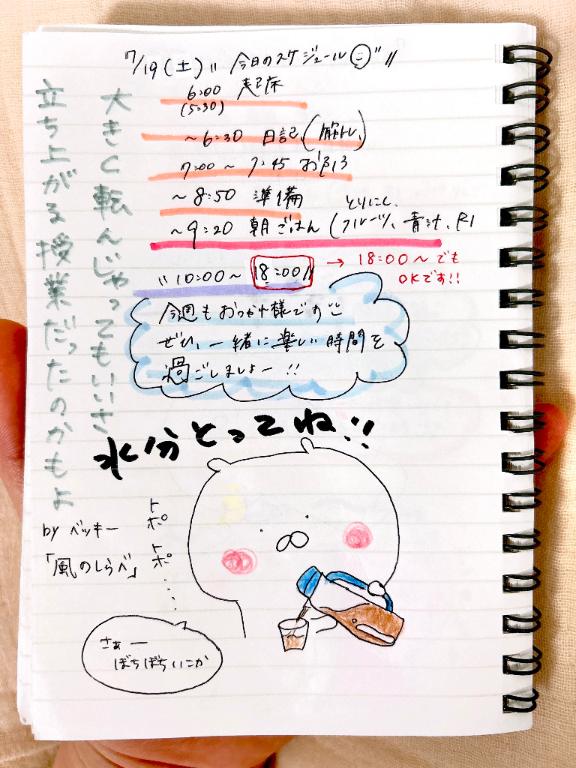 7/19(土)" 今日のスケジュール"
6:00 起床
(5:30)
~6:30 日記(筋トレ)
7:00~7:45 お風ろ
~8:50 準備
とりにく、
~9:20 朝ごはん(フルーツ、青汁、R1
"10:00~18:00" → 18:00~でも
OKです!!
今週もおつかれ様です
ぜひ、一緒に楽しい時間を
過ごしましょー!!
大きく転んじゃってもいいさ
立ち上がる授業だったのかもよ
by ベッキー
「風のしらべ」
水分とってね!!
トポトポ....
さぁー
ぼちぼちいこか